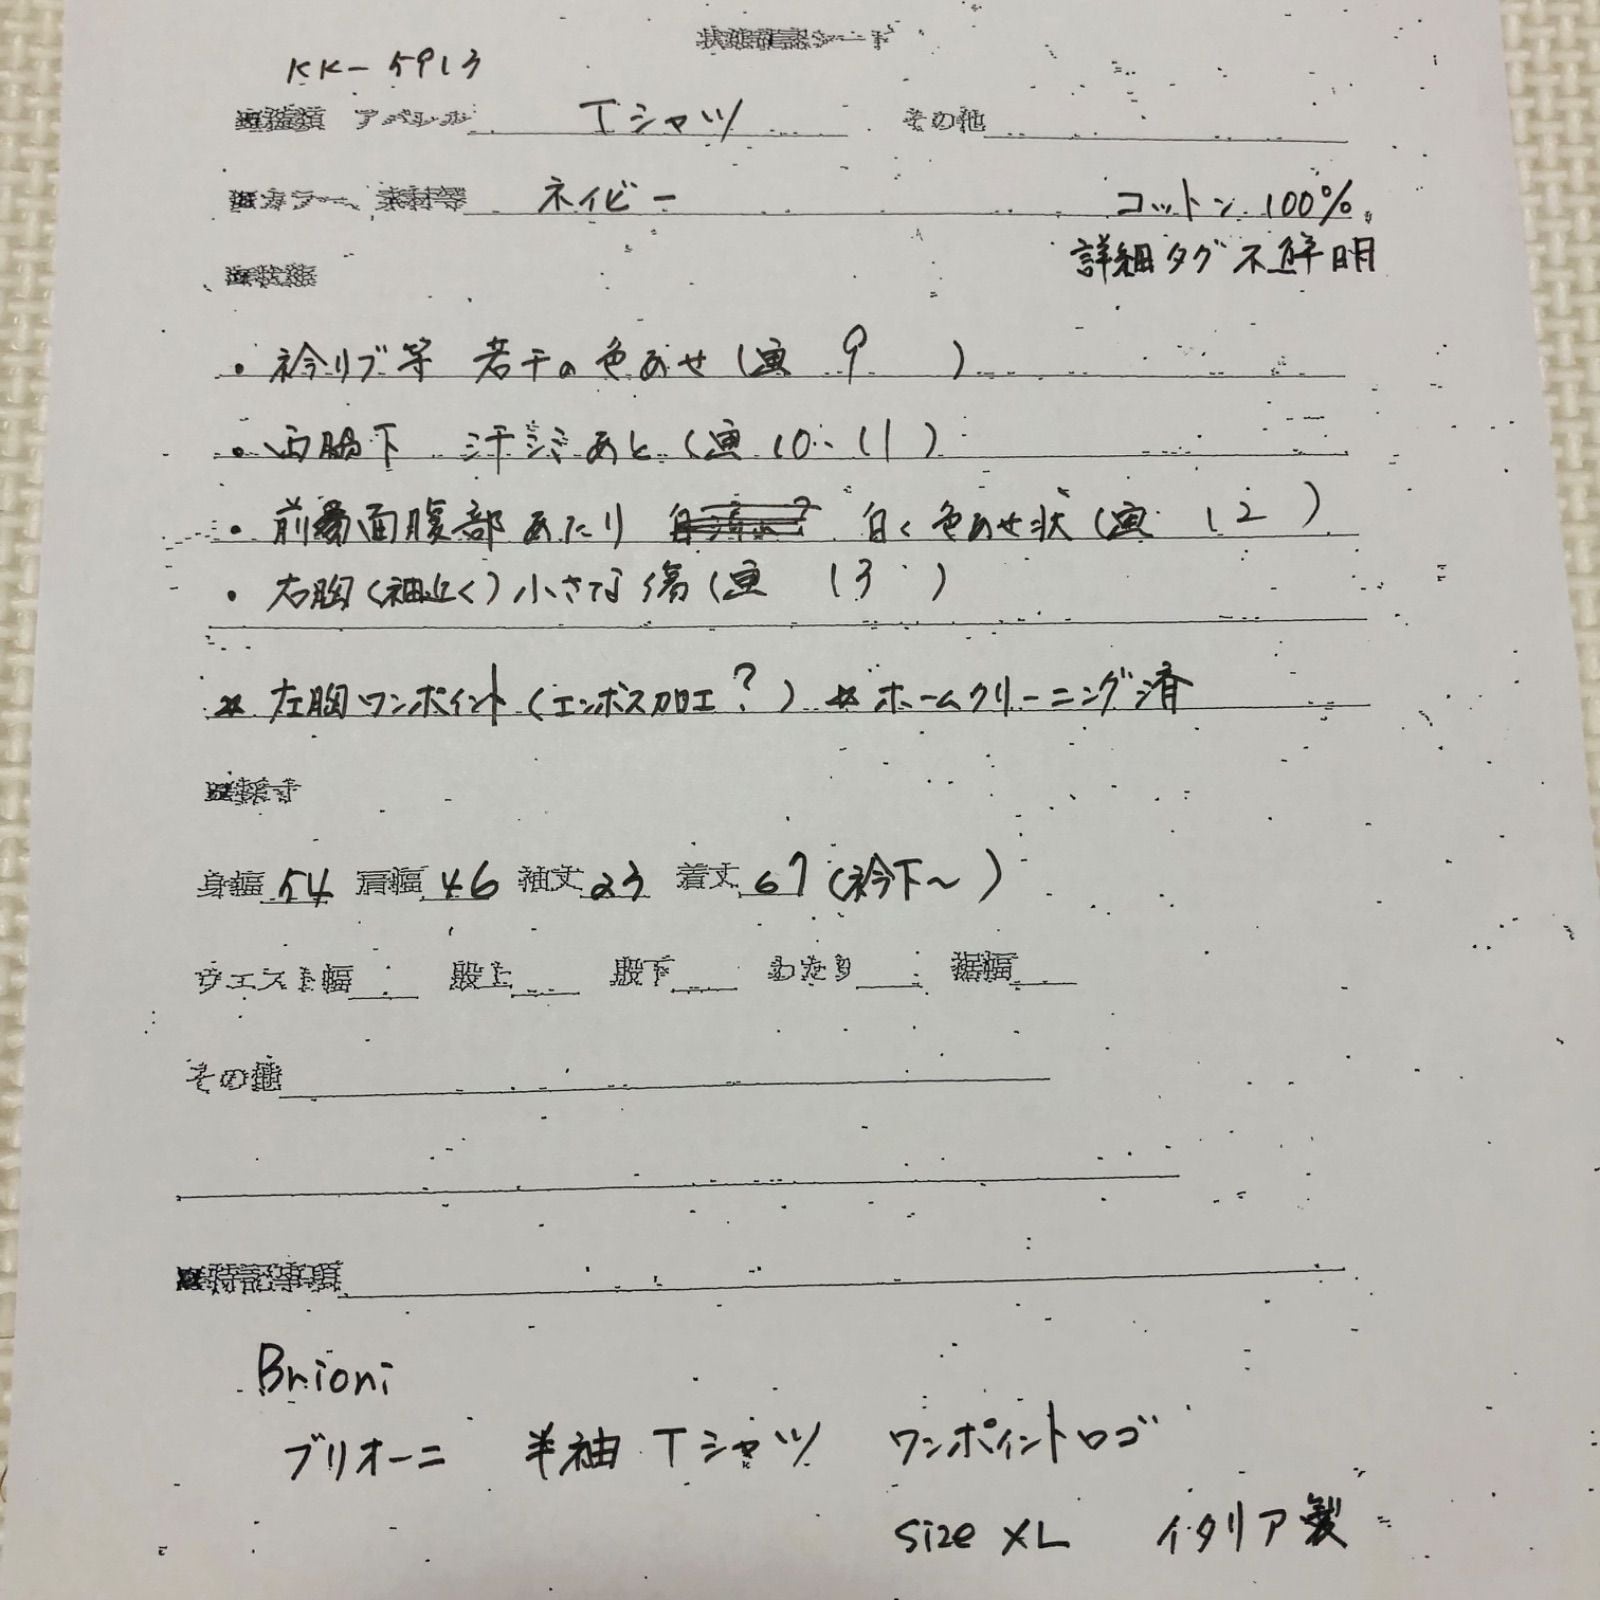 状態確認シート
KK-5913
■種類 アパレル Tシャツ その他
■カラー、素材等 ネイビー コットン 100%
詳細タグ不鮮明
■状態
・衿リブ等 若干の色あせ(画 9 )
・両脇下 汗ジミあと(画 10、11)
・前面腹部あたり 白く色あせ状(画 12 )
・右胸(袖近く)小さな傷(画 13 )
* 左胸ワンポイント(エンボス加工?) * ホームクリーニング済
■採寸
身幅 54 肩幅 46 袖丈 23 着丈 67 (衿下〜 )
ウエスト幅 股上 股下 わたり 裾幅
その他
■特記事項
Brioni
ブリオーニ 半袖 Tシャツ ワンポイントロゴ
size XL イタリア製